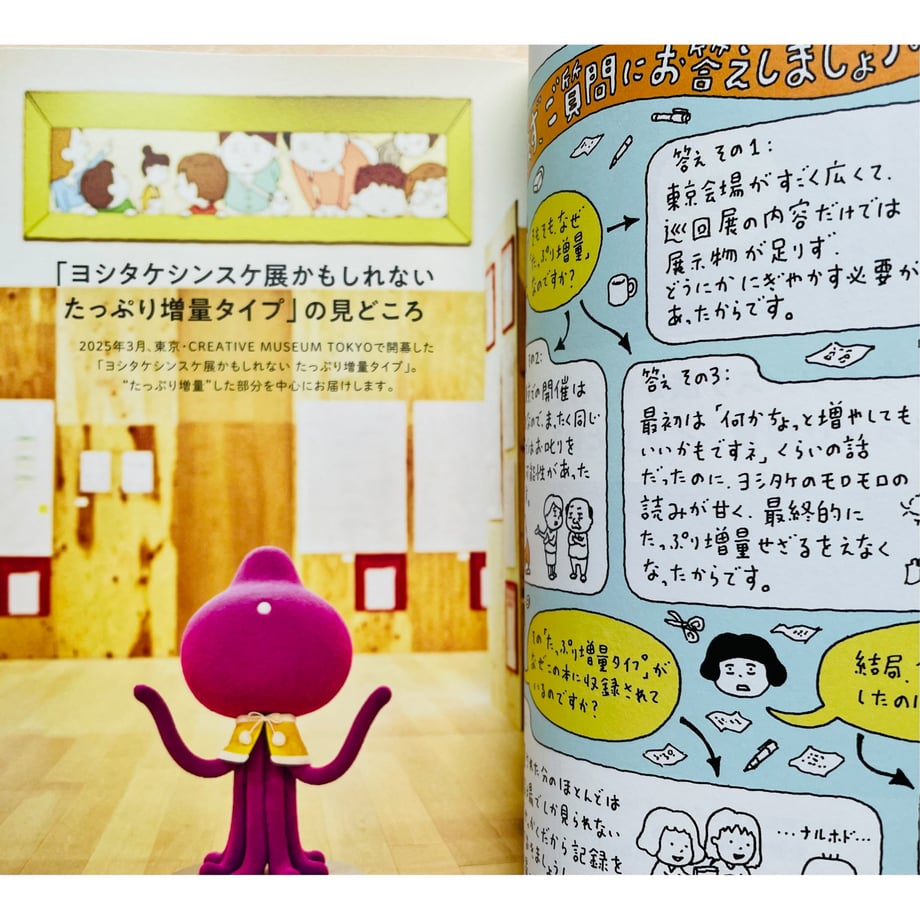 「ヨシタケシンスケ展かもしれない
たっぷり増量タイプ」の見どころ
2025年3月、東京・CREATIVE MUSEUM TOKYOで開幕した
「ヨシタケシンスケ展かもしれない たっぷり増量タイプ」。
“たっぷり増量”した部分を中心にお届けします。
ご質問にお答えしましょう
答え その1:
東京会場がすごく広くて、
巡回展の内容だけでは
展示物が足りず、
どうにかにぎやかす必要が
あったからです。
そもそも、なぜ
「たっぷり増量」
なのですか?
その2:
の開催は
なので、まったく同じ
はお叱りを
可能性があった
答え その3:
最初は「何かちょっと増やしても
いいかもですネ」くらいの話
だったのに、ヨシタケのモロモロの
読みが甘く、最終的に
たっぷり増量せざるをえなく
なったからです。
その「たっぷり増量タイプ」が
なぜこの本に収録されて
いるのですか?
結局、
したの
れた分のほとんどは
場でしか見られない
かくだから記録を
きましょう
…ナルホド…